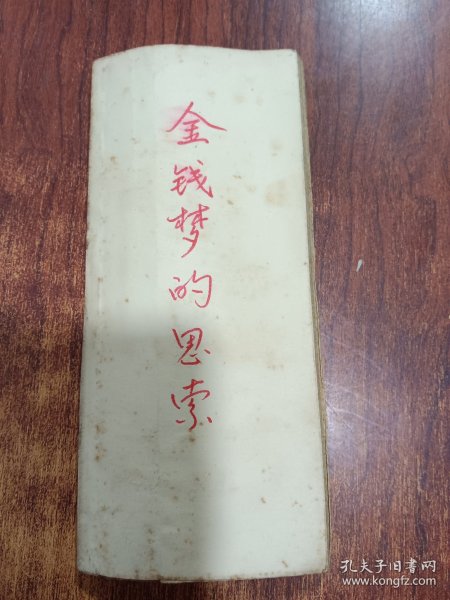 金钱梦的思索
孔夫子旧书网
www.kongfz.com